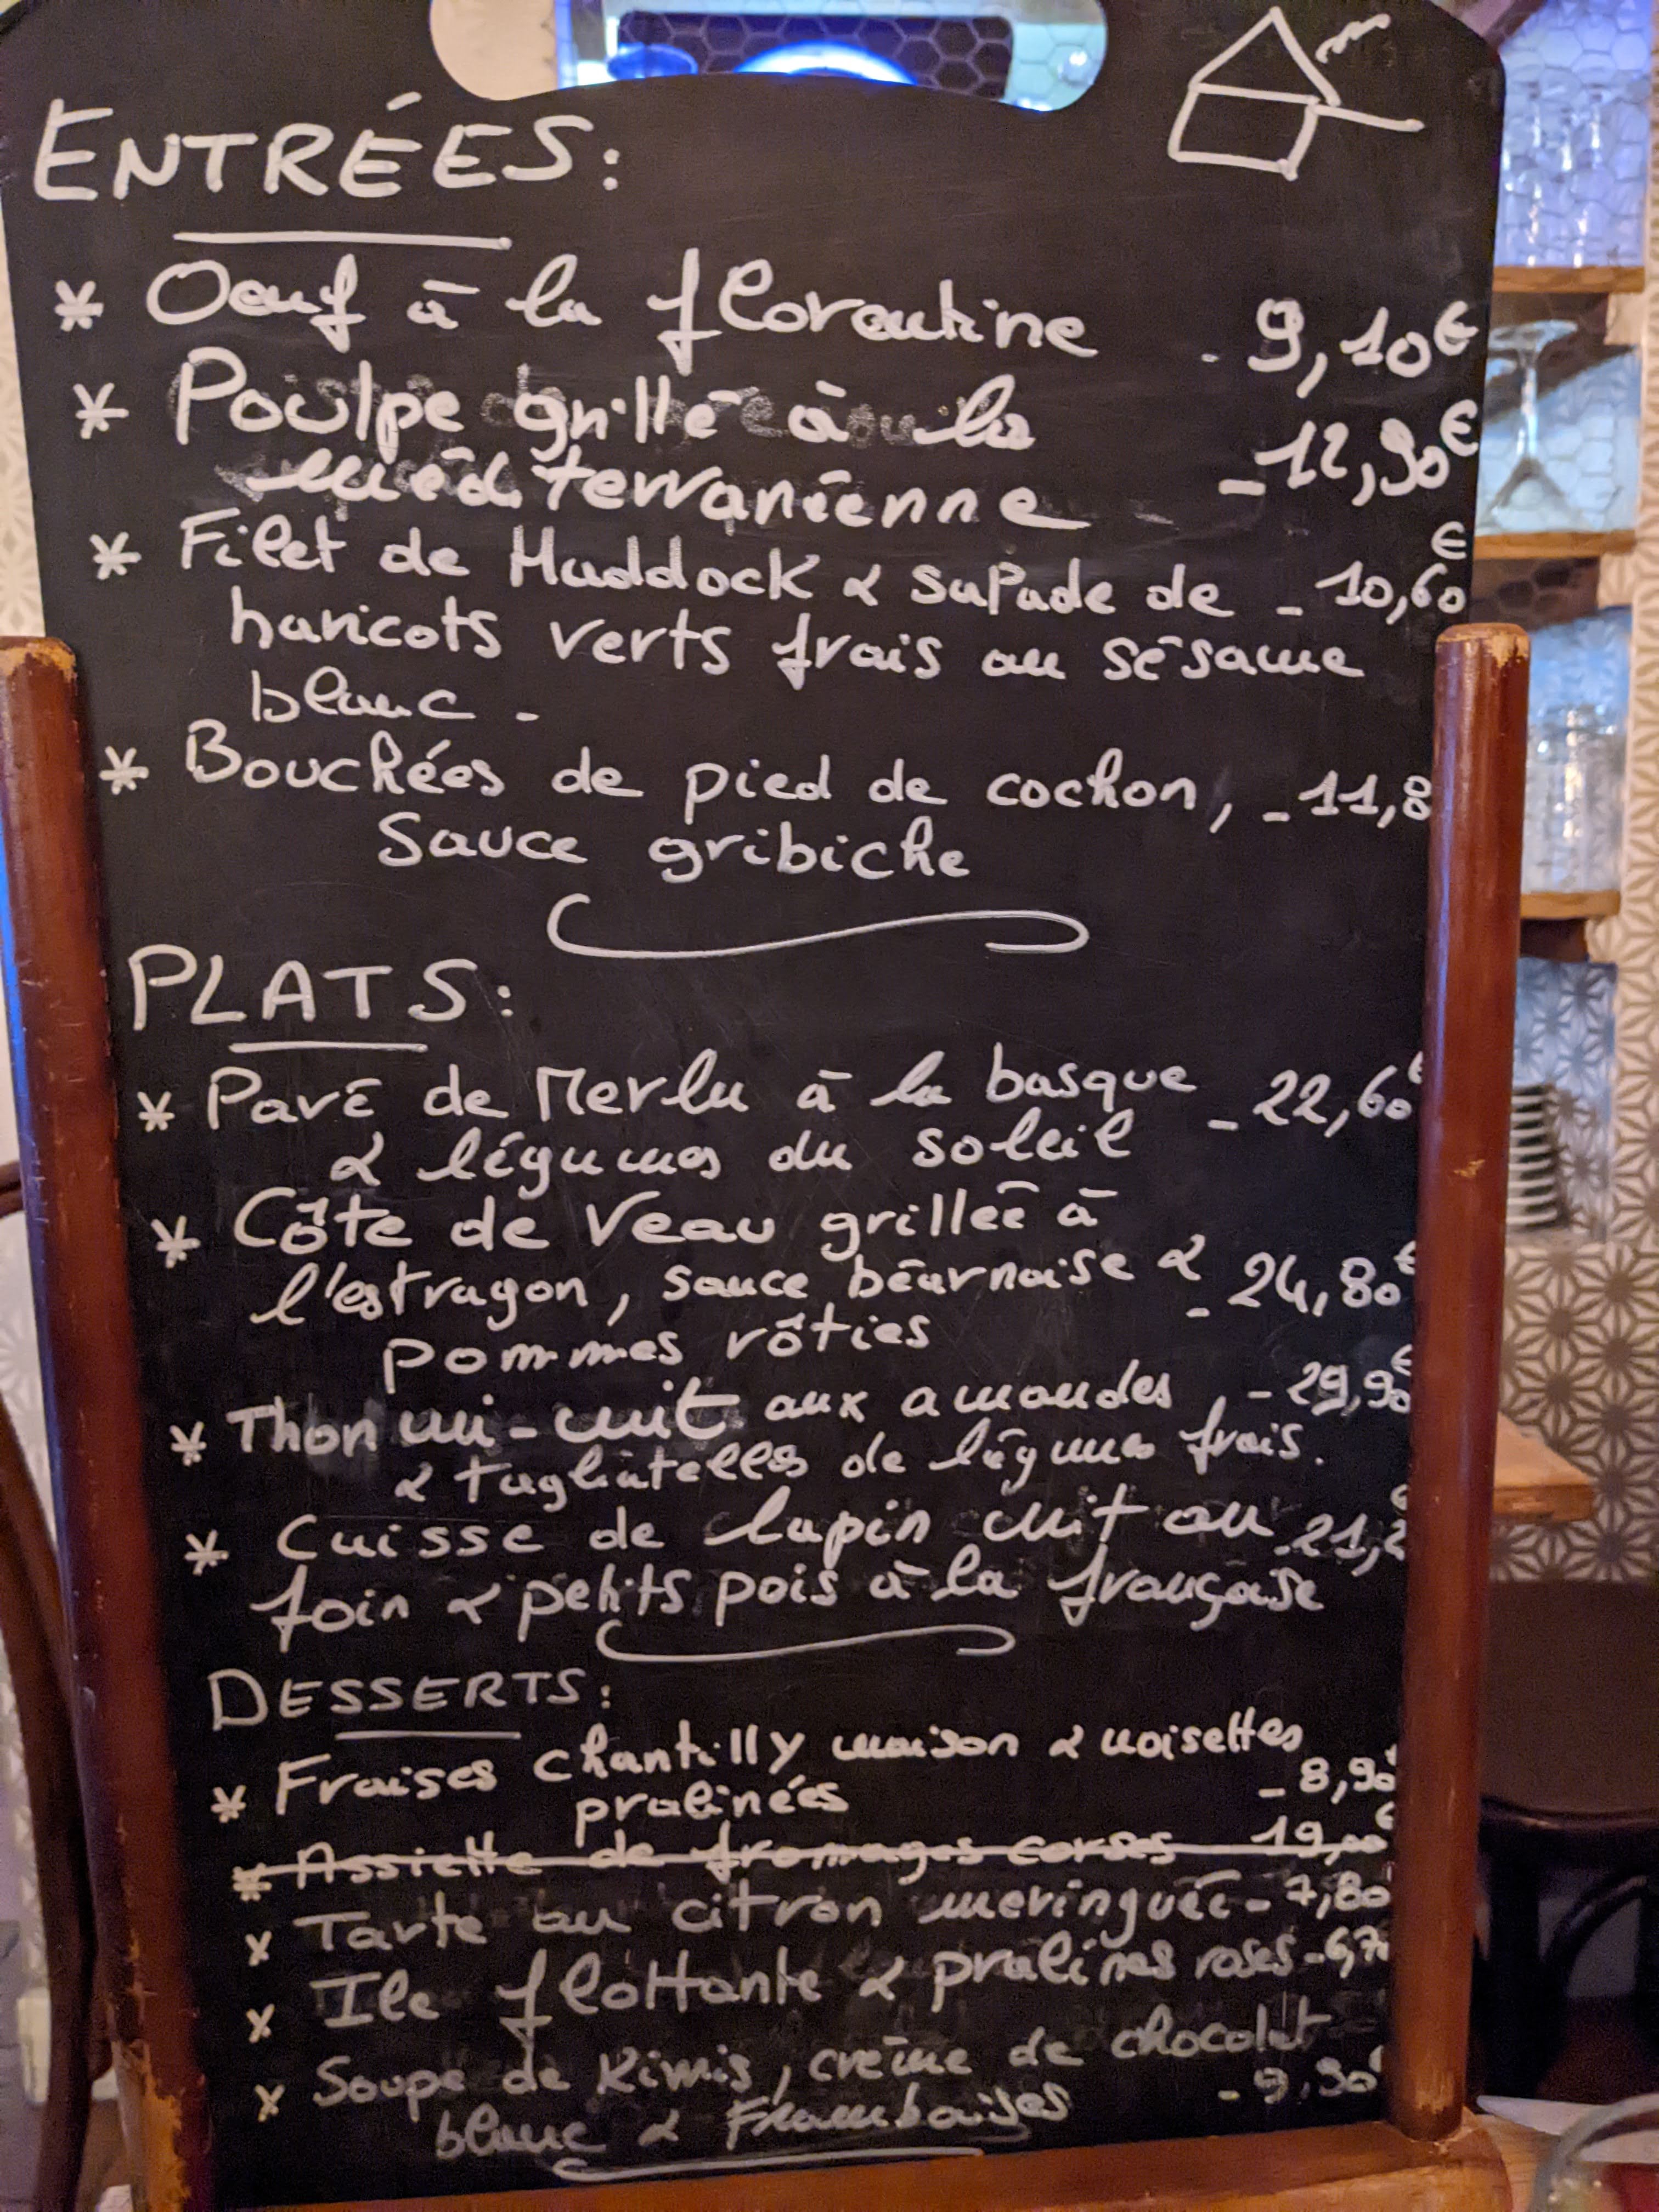 ENTRÉES:
* Oeuf à la florentine - 9,10€
* Poulpe grillé à la
méditerranéenne - 12,90€
* Filet de Haddock & salade de - 10,60€
haricots verts frais au sésame
blanc.
* Bouchées de pied de cochon, - 11,8
Sauce gribiche
PLATS:
* Pavé de Merlu à la basque - 22,60€
& légumes du soleil
* Côte de Veau grillée à
l'estragon, sauce béarnaise & - 24,80€
pommes rôties
* Thon mi-cuit aux amandes, - 29,90€
& tagliatelles de légumes frais.
* Cuisse de lapin cuit au - 21,2
foin & petits pois à la française
DESSERTS:
* Fraises chantilly maison & noisettes
pralinées - 8,90
* Assiette de fromages corses 19,00€
* Tarte au citron meringuée - 7,80
* Ile flottante & pralines roses - 6,70
* Soupe de Kiwis, crème de chocolat
blanc & Framboises - 9,90€